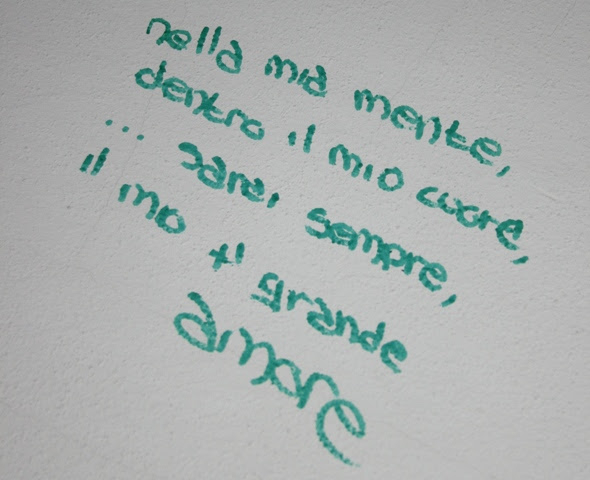 nella mia mente,
dentro il mio cuore,
... sarai sempre,
il mio + grande
amore